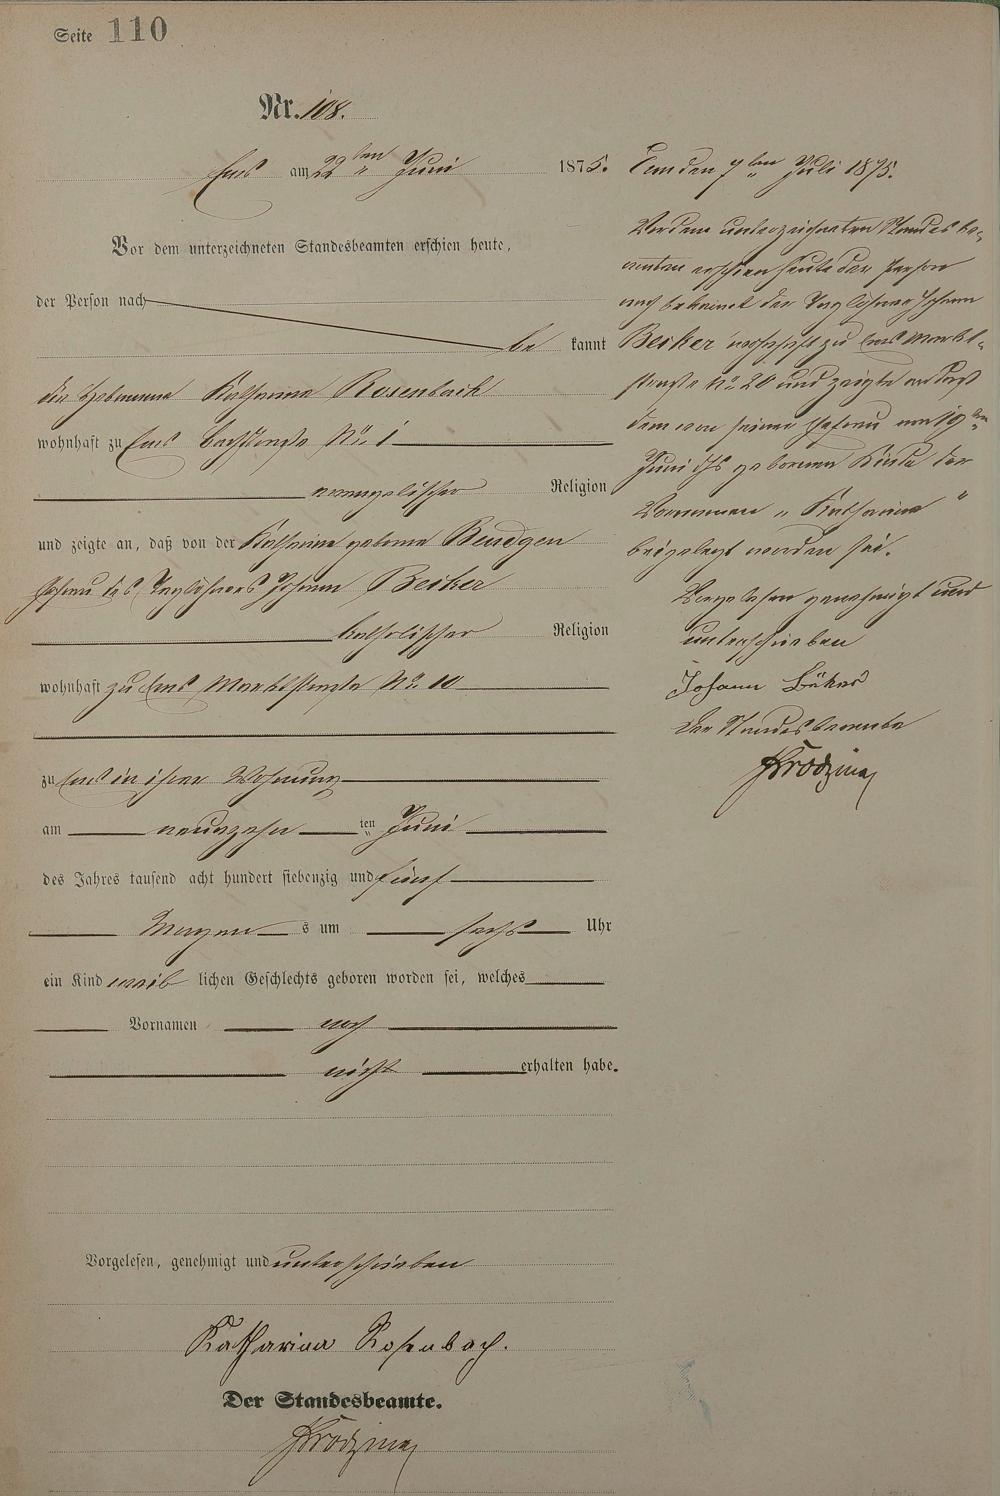 Seite 110
Nr. 108.
Ems am 22ten Juni 1875.
Vor dem unterzeichneten Standesbeamten erschien heute,
der Person nach
bekannt
die Hebamme Katharina Rosenbach
wohnhaft zu Ems Bachstraße No. 1
evangelischer Religion
und zeigte an, daß von der Katharina geborene Bendgen
Ehefrau des Taglöhners Johann Becker
katholischer Religion
wohnhaft zu Ems Marktstraße No. 10
zu Ems in ihrer Wohnung
am neunzehn ten Juni
des Jahres tausend acht hundert siebenzig und fünf
Morgens um sechs Uhr
ein Kind weiblichen Geschlechts geboren worden sei, welches
Vornamen noch
nicht erhalten habe.
Vorgelesen, genehmigt und unterschrieben
Katharina Rosenbach.
Der Standesbeamte.
Ems den 7ten Juli 1875.
Vor dem unterzeichneten Standesbe-
amten erschien heute der Person
nach bekannt der Taglöhner Johann
Becker wohnhaft zu Ems Markt-
straße No. 20 und zeigte an daß
dem von seiner Ehefrau am 19ten
Juni ds geborenen Kinde der
Vornamen „Katharina"
beigelegt worden sei.
Vorgelesen genehmigt und
unterschrieben
Johann Bäker
Der Standesbeamte